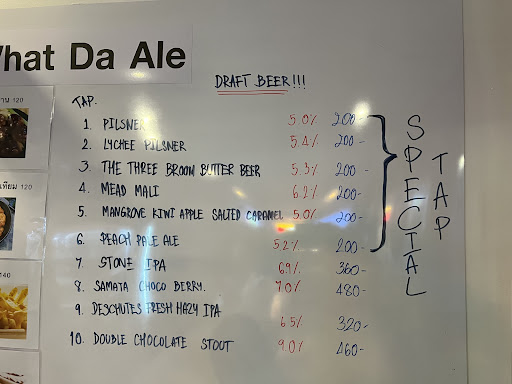 What Da Ale
DRAFT BEER!!!
TAP.
1. PILSNER 5.0% 200-
2. LYCHEE PILSNER 5.4% 200-
3. THE THREE BROOM BUTTER BEER 5.3% 200-
4. MEAD MALI 6.2% 200-
5. MANGROVE KIWI APPLE SALTED CARAMEL 5.0% 200-
6. PEACH PALE ALE 5.2% 200-
7. STONE IPA 6.9% 360-
8. SAMATA CHOCO BERRY. 7.0% 480-
9. DESCHUTES FRESH HAZY IPA 6.5% 320-
10. DOUBLE CHOCOLATE STOUT 9.0% 460-
SPECIAL
TAP
120
เทียม 120
140